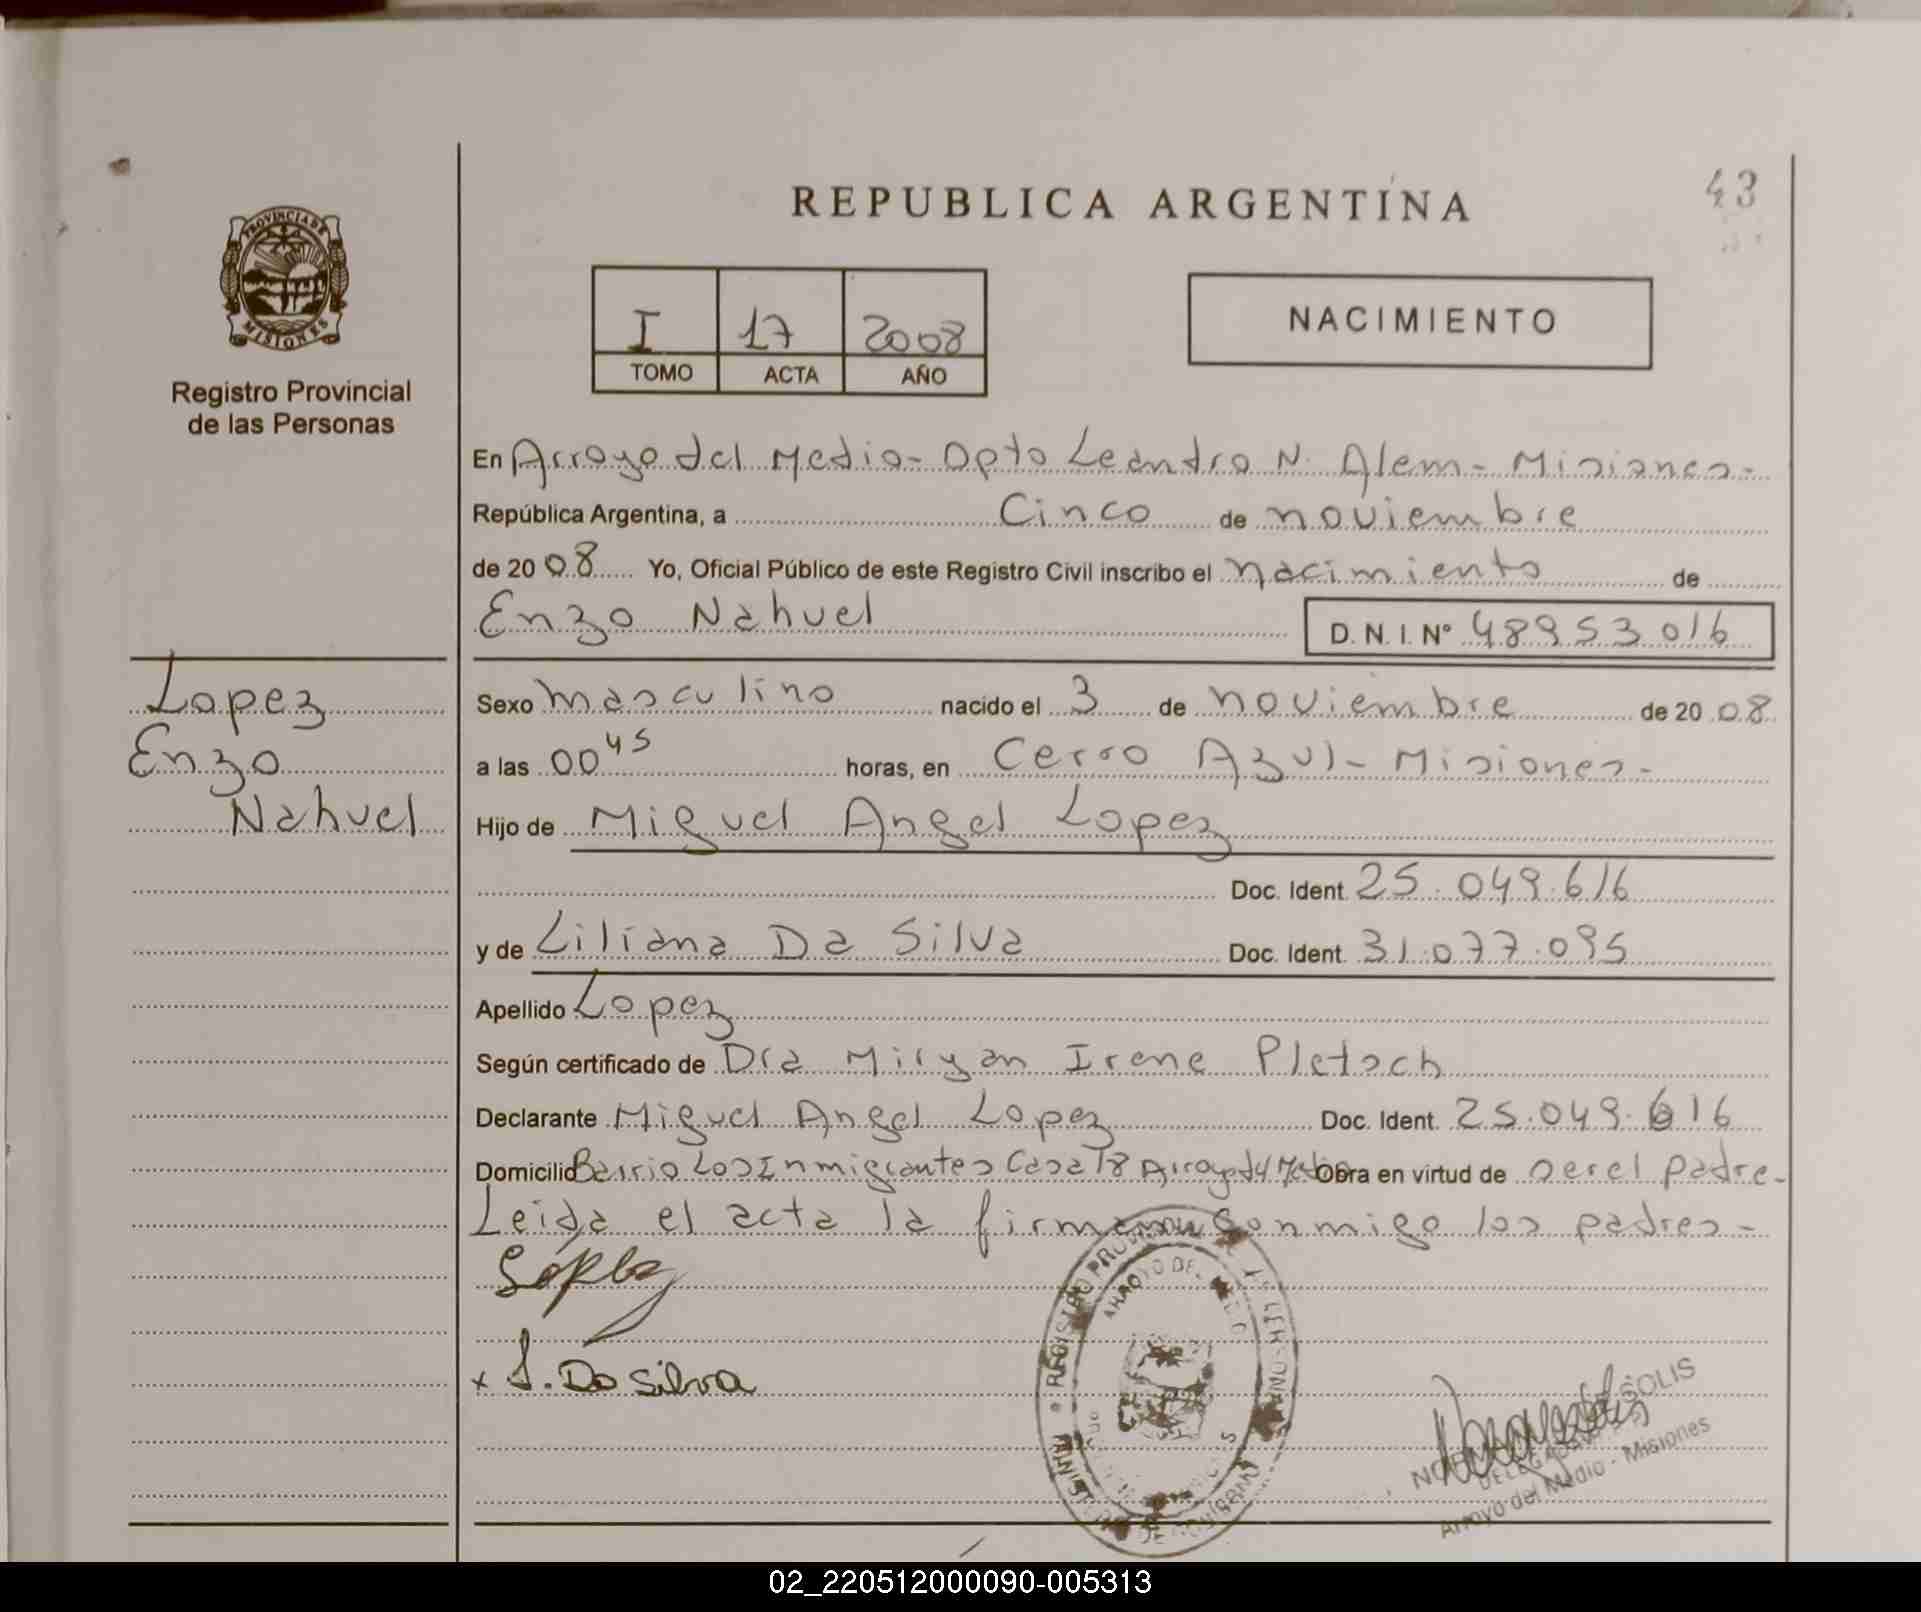 REPUBLICA ARGENTINA
43
PROVINCIA DE
MISIONES
Registro Provincial
de las Personas
I 17 2008
TOMO ACTA AÑO
NACIMIENTO
En Arroyo del Medio - Dpto Leandro N. Alem - Misiones -
República Argentina, a Cinco de noviembre
de 2008 Yo, Oficial Público de este Registro Civil inscribo el nacimiento de
Enzo Nahuel D.N.I.Nº 48953016
Lopez
Enzo
Nahuel
Sexo masculino nacido el 3 de noviembre de 2008
a las 00 45 horas, en Cerro Azul - Misiones -
Hijo de Miguel Angel Lopez
Doc. Ident. 25.049.616
y de Liliana Da Silva Doc. Ident. 31.077.095
Apellido Lopez
Según certificado de Dra Miryan Irene Pletsch
Declarante Miguel Angel Lopez Doc. Ident. 25.049.616
Domicilio Barrio Los Inmigrantes Casa 18 Arroyo del Medio Obra en virtud de ser el padre -
Leida el acta la firman conmigo los padres -
Lopez
x L. Da Silva
REGISTRO PROVINCIAL DE LAS PERSONAS
ARROYO DEL MEDIO
MINISTERIO DE GOBIERNO
SOLIS
DELEGADA
Arroyo del Medio - Misiones
02_220512000090-005313